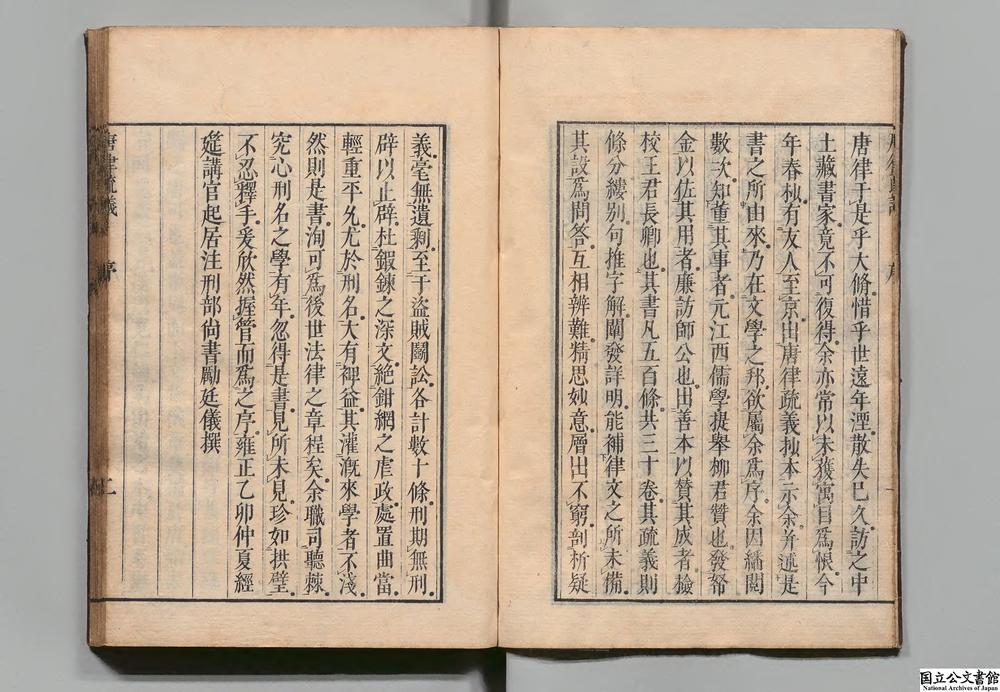 唐律于是乎大脩惜乎世遠年湮散失已久訪之中
土藏書家竟不可復得余亦常以未獲寓目爲恨今
年春杪有友人至京出唐律疏義抄本示余并述是
書之所由來乃在文學之邦欲屬余爲序余因繙閱
數次知董其事者元江西儒學提舉柳君贇也發帑
金以佐其用者廉訪師公也出善本以贊其成者檢
校王君長卿也其書凡五百條共三十卷其疏義則
條分縷别句推字解闡發詳明能補律文之所未備
其設爲問答互相辨難精思妙意層出不窮剖析疑
義毫無遺剩至于盜賊鬬訟各計數十條刑期無刑
辟以止辟杜鍜鍊之深文絶鉗網之虐政處置曲當
輕重平允尤於刑名大有裨益其灌漑來學者不淺
然則是書洵可爲後世法律之章程矣余職司聽棘
究心刑名之學有年忽得是書見所未見珍如拱璧
不忍釋手爰欣然握管而爲之序雍正乙卯仲夏經
筵講官起居注刑部尙書勵廷儀撰
唐律疏義
序
二
国立公文書館
National Archives of Japan